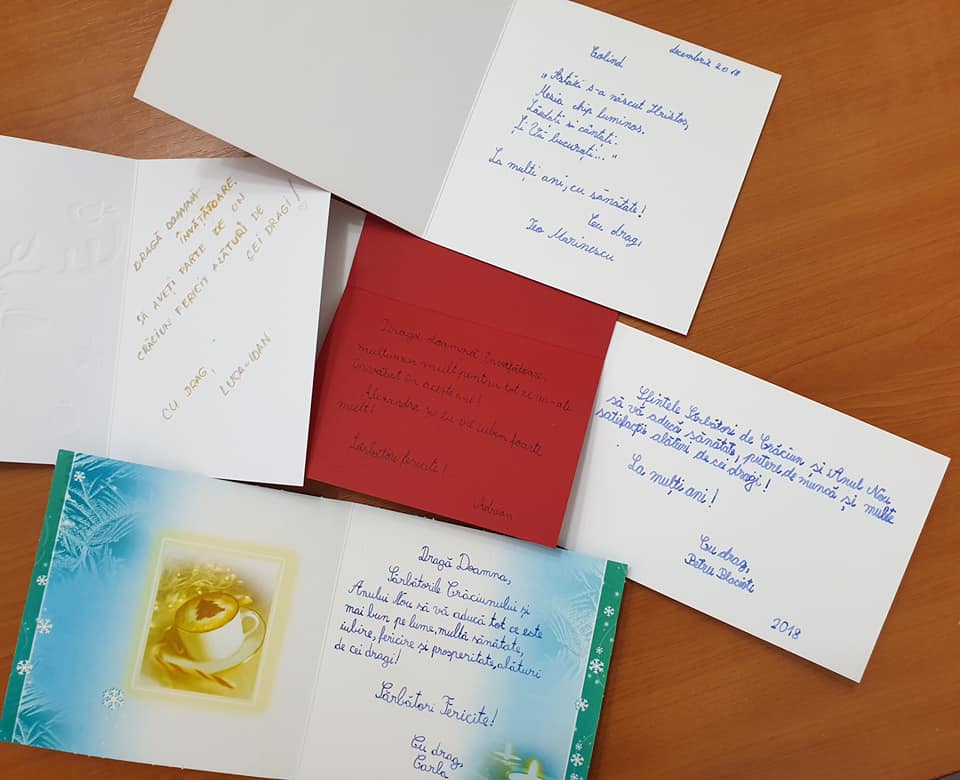 decembrie 2018
Colind
„Astăzi s-a născut Hristos,
Mesia chip luminos.
Lăudați si cântați.
Și Vă bucurați..."
La mulți ani, cu sănătate!
Cu drag,
Teo Marinescu
DRAGĂ DOAMNĂ
ÎNVĂȚĂTOARE,
SĂ AVEȚI PARTE DE UN
CRĂCIUN FERICIT ALĂTURI DE
CEI DRAGI!
CU DRAG,
LUCA-IOAN
Dragă doamnă Învățătoare,
mulțumesc mult pentru tot ce m-ați
învățat în acest an!
Alexandra și eu vă iubim foarte
mult!
Sărbători fericite!
Adrian
Sfintele Sărbători de Crăciun și Anul Nou
să vă aducă sănătate, putere de muncă și multe
satisfacții alături de cei dragi!
La mulți ani!
Cu drag,
Petru
2018
Dragă Doamna,
Sărbătorile Crăciunului și
Anului Nou să vă aducă tot ce este
mai bun pe lume, multă sănătate,
iubire, fericire și prosperitate, alături
de cei dragi!
Sărbători Fericite!
Cu drag,
Carla